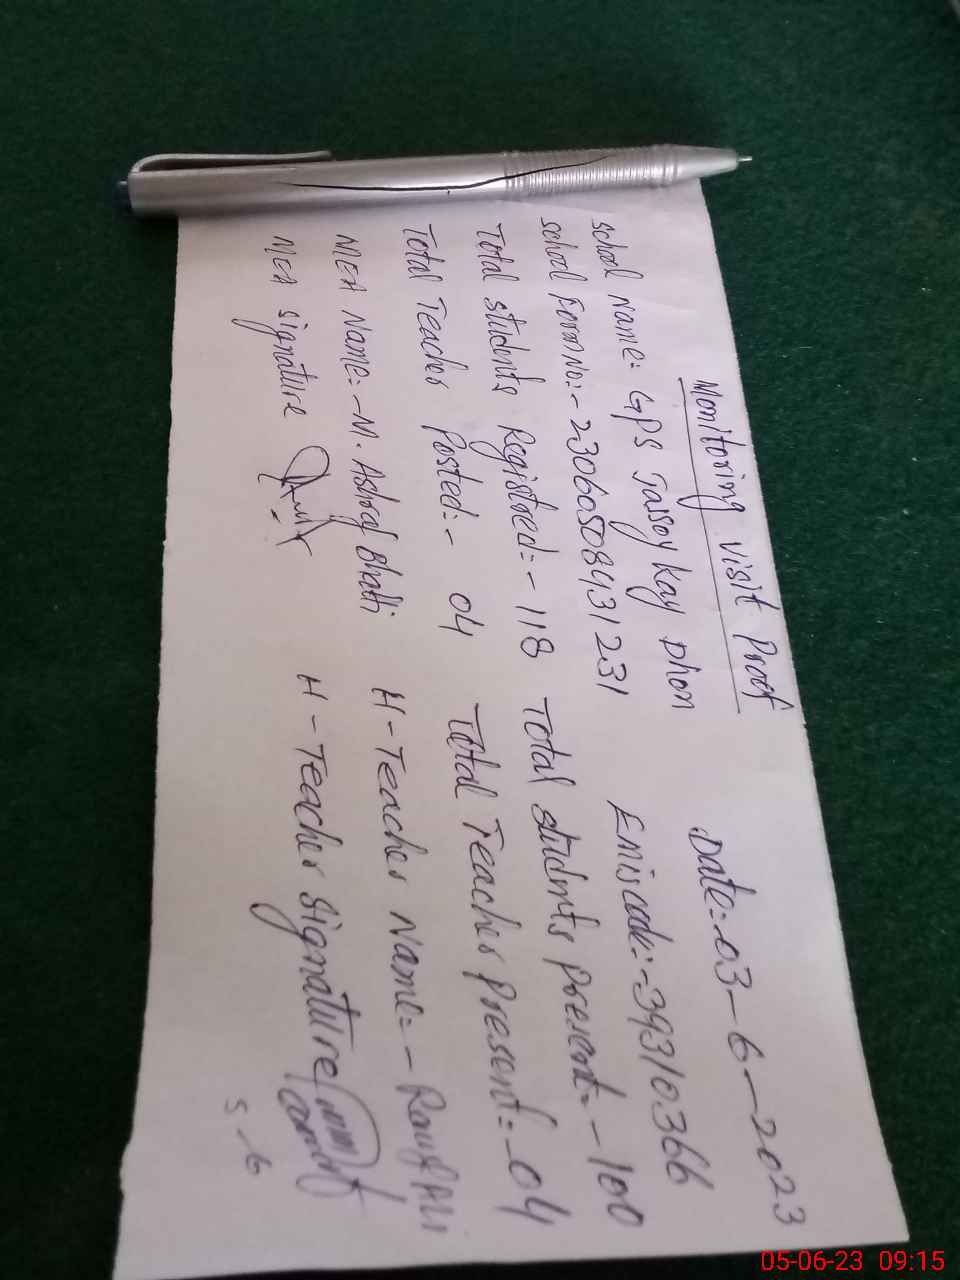 Monitoring visit Proof
Date:-03-6-2023
school Name:- GPS Jaissy Kay Dhon
Emis code:-39310366
school Form No:-2306050843 1231
Total students Registred:-118 Total studnts Present:-100
Total Teacher Posted:- 04 Total Teacher Present:-04
MEA Name:-M. Ashraf Bhatti H-Teacher Name:-Rauf Ali
MEA signature H-Teacher signature
5-6
05-06-23 09:15